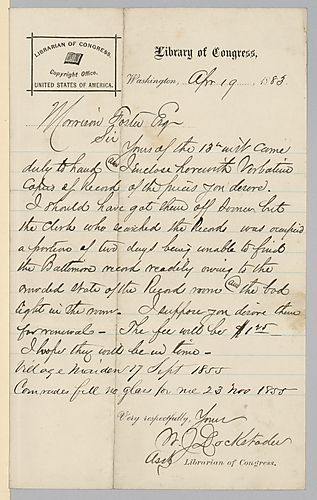 LIBRARIAN OF CONGRESS.
Copyright Office.
UNITED STATES OF AMERICA.
Library of Congress,
Washington, Apr 19 1883
Morrison Foster Esq
Sir
Yours of the 13th inst came
duly to hand and I inclose herewith Verbatim
Copies of Record of the pieces you desire.
I should have got them off sooner but
the Clerk who searched the Records was occupied
a portion of two days being unable to find
the Baltimore record readily owing to the
crowded state of the Record room and the bad
light in the room. I suppose you desire them
for renewal - The fee will be $1.00
I hope they will be in time -
Village Maiden 17 Sept 1855
Comrades fill no glass for me 23 Nov 1855
Very respectfully, Yours
W. J. Dockstader
Asst Librarian of Congress.